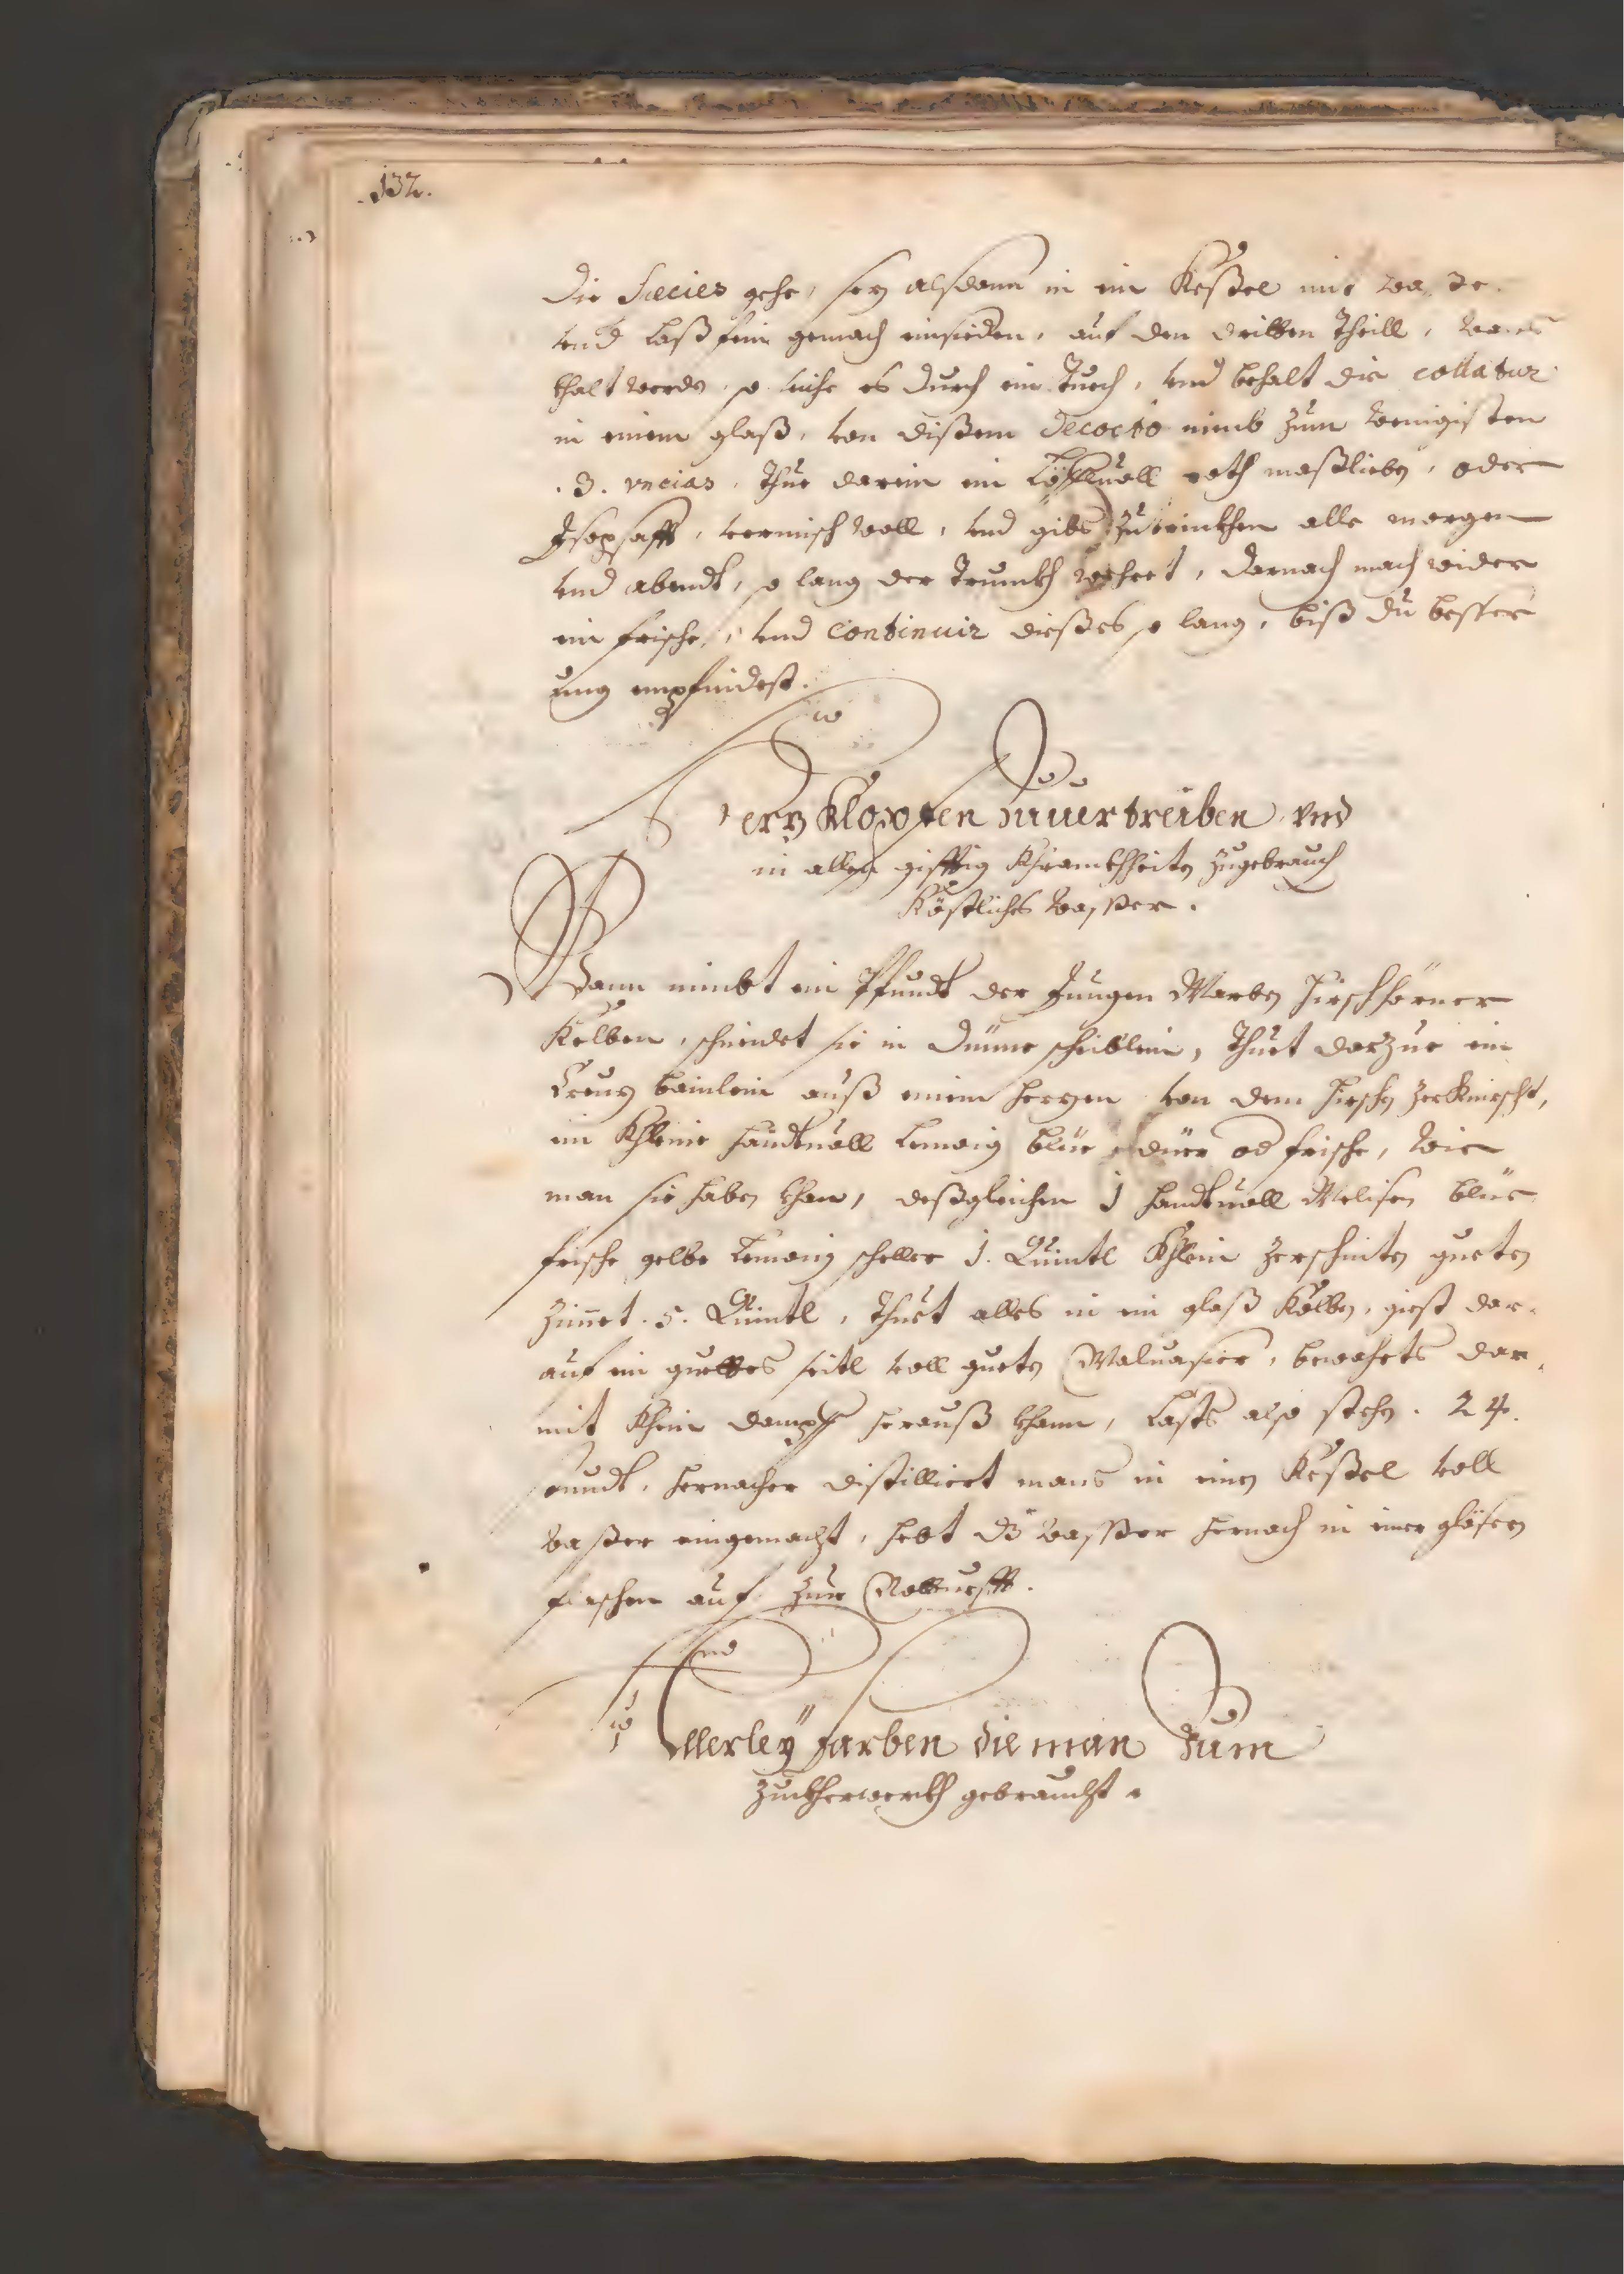 .132.
die Species gehe, sez alsdann in ein Keßel mit
vnd laß fein gemach einsieden, auf den dritten Theill, wans
khalt worden, so seihe es durch ein Tuech, vnd behalt die collatur
in einem glaß, von dißem decocto nimb zum wenigisten
.3. vncias, Thue darein ein Löffluoll roth maßlieben, oder
Isopsafft, vermisch woll, vnd gibs zutrinkhen alle morgen
vnd abendt, so lang der Trunkh wehret, darnach mach wider
ein frische, vnd continuir dießes so lang, biß du besser
ung empfindest.
Herz Klopffen zuuertreiben vnd
in allen gifftig Khrankhheiten zugebrauch
Köstliches wasser.
Man nimbt ein Pfundt der Jungen Marben Hirschhörner
Kolben, schneidet sie in dünne scheiblein, Thuet darzue ein
Creuz bainlein auß einem herzen von dem hirschen zerKnirscht,
ein Khleine handtuoll Lemoni blüe dürr od frische, wie
man sie haben khan, deßgleichen 1 handtuoll Melisen blüe
frische gelbe Lemoni scheller 1. Quintl Khlein zerschnitten gueten
Zimet .5. Quintl, Thuet alles in ein glaß Kolben, giest dar-
auf ein guettes seitl voll gueten Maluasier, bewahrts dar
mit Khein dampff herauß khann, Lasts also stehen .24.
stundt, hernacher distilliert mans in einen Keßel voll
waßer eingemacht, hebt dz wasser hernach in einer gläsern
flaschen auf zur Notturfft.
Allerley farben die man zum
Zuckherwerckh gebraucht.